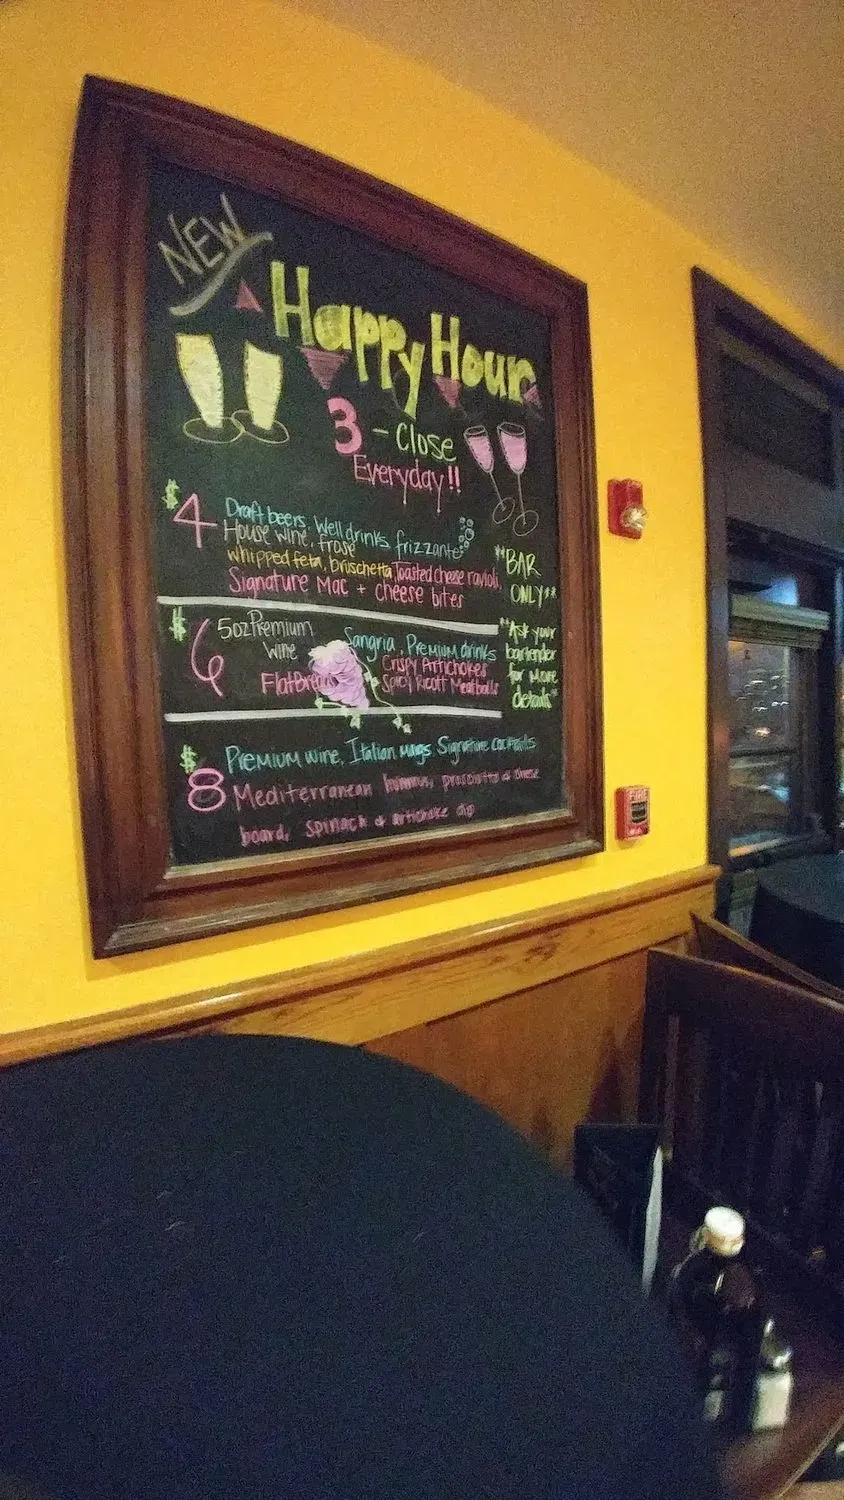 NEW
Happy Hour
3 - Close
Everyday!!
$4 Draft beers, Well drinks, frizzante
House wine, frose
whipped feta, bruschetta, Toasted cheese ravioli,
Signature Mac + cheese bites
**BAR
ONLY**
$6 5oz Premium
Wine
FlatBreads
Sangria, Premium drinks
Crispy Artichokes
Spicy Ricott Meatballs
**Ask your
bartender
for more
details**
$8 Premium wine, Italian mugs Signature cocktails
Mediterranean hummus, prosciutto & cheese
board, spinach & artichoke dip
FIRE